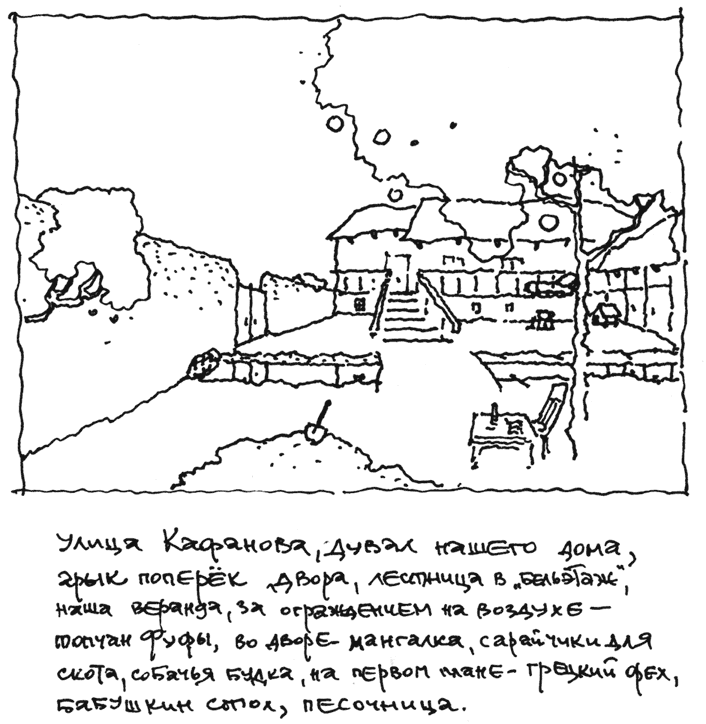 Улица Кафанова, дувал нашего дома,
арык поперёк двора, лестница в „бельэтаж",
наша веранда, за ограждением на воздухе —
топчан Фуфы, во дворе - мангалка, сарайчики для
скота, собачья будка, на первом плане - грецкий орех,
бабушкин стол, песочница.